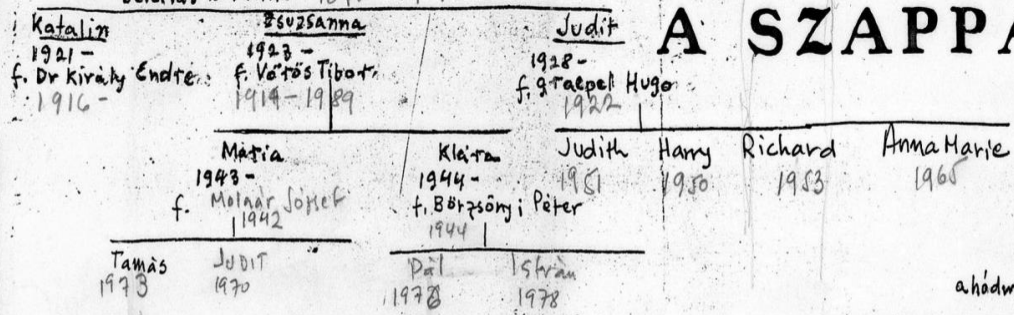 Katalin
1921 -
f. Dr Király Endre
1916 -
Zsuzsanna
1923 -
f. Vörös Tibor
1914 - 1989
Judit
1928 -
f. Graepel Hugo
1922
A SZAPPA
Mária
1943 -
f. Molnár József
1942
Klára
1944 -
f. Börzsönyi Péter
1944
Judith
1951
Harry
1950
Richard
1953
Anna Marie
1965
Tamás
1973
JUDIT
1970
Pál
István
1978